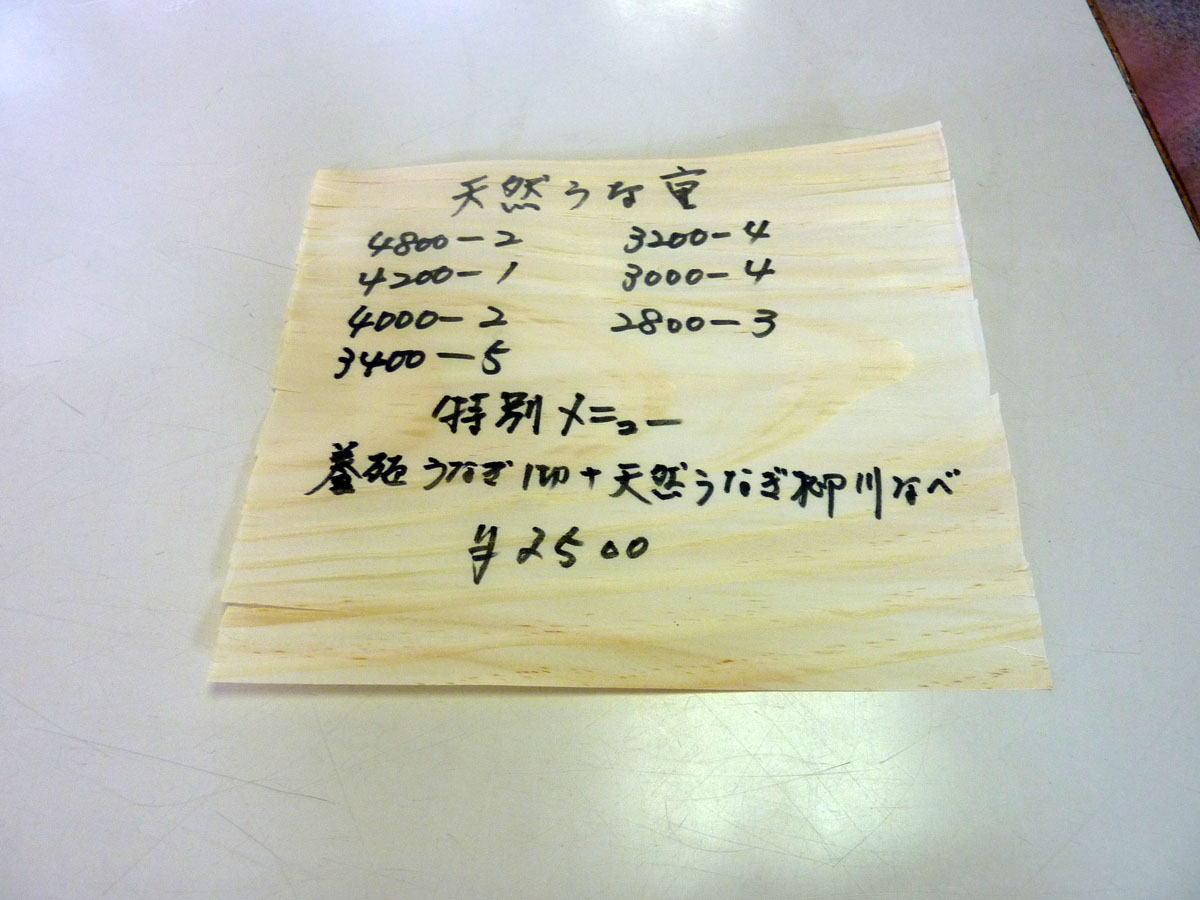 天然うな重
4800-2 3200-4
4200-1 3000-4
4000-2 2800-3
3400-5
特別メニュー
養殖うなぎ1切+天然うなぎ柳川なべ
¥2500